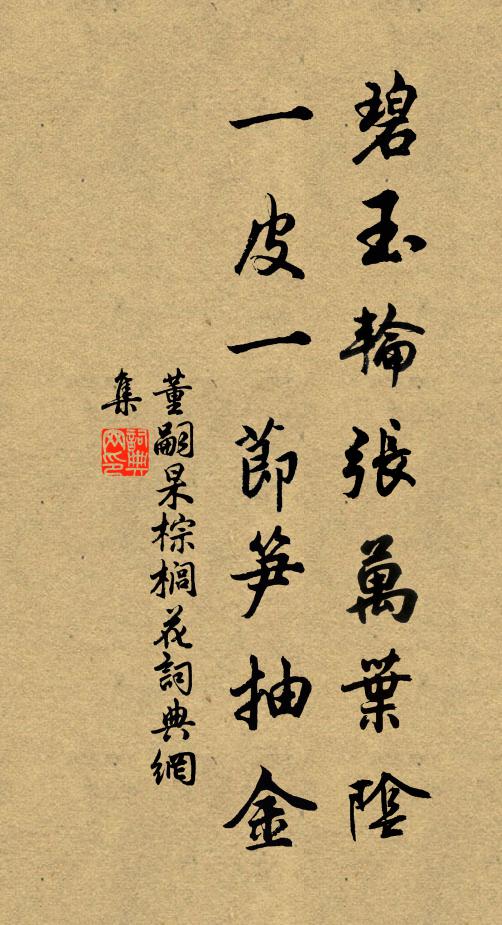 碧玉輪張萬葉陰
一皮一節笋抽金
董嗣杲棕櫚花詞典網
集
詞典
网印